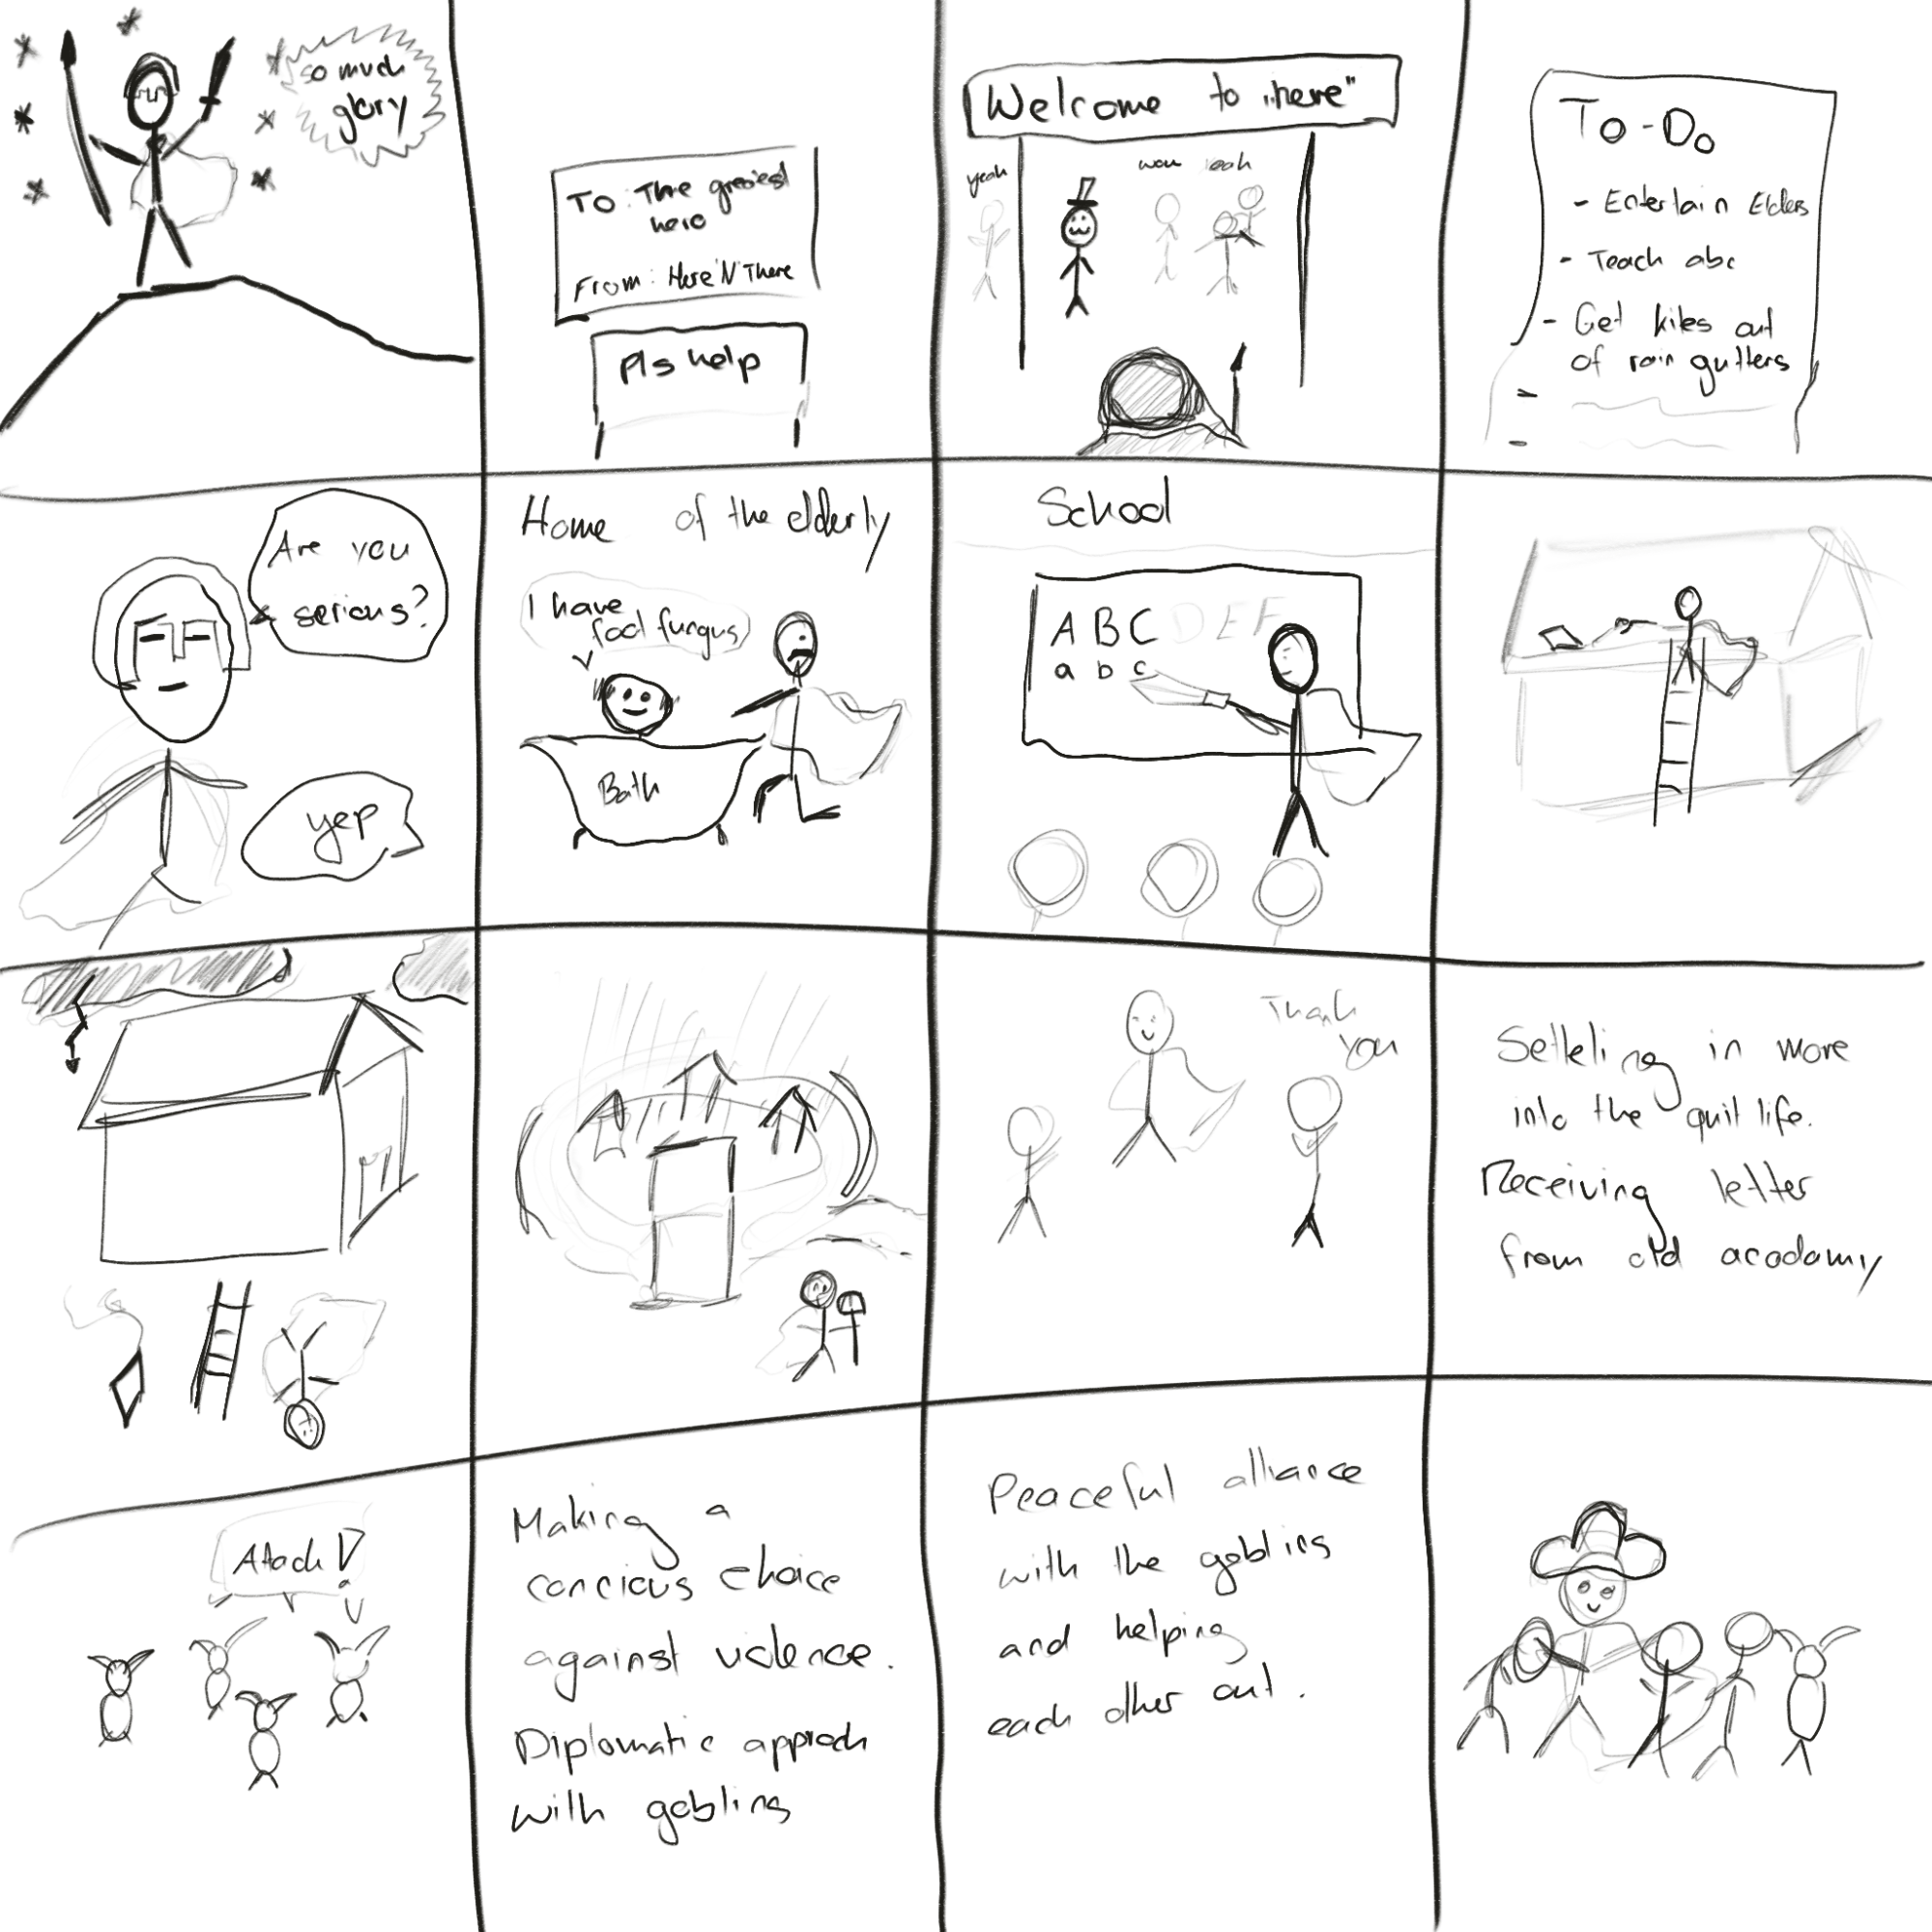 so much
glory
To: The greatest
hero
From: Here'N'There
Pls help
Welcome to „here"
yeah
wou
eah
To-Do
- Entertain Elders
- Teach abc
- Get kites out
of rain gutters
Are you
serious?
yep
Home of the elderly
I have
foot fungus
Bath
School
A B C D E F
a b c
Thank
you
Setteling in more
into the quit life.
Receiving letter
from old acadamy
Attack!
Making a
concious choice
against violence.
Diplomatic approch
with goblins
Peaceful alliance
with the goblins
and helping
each other out.